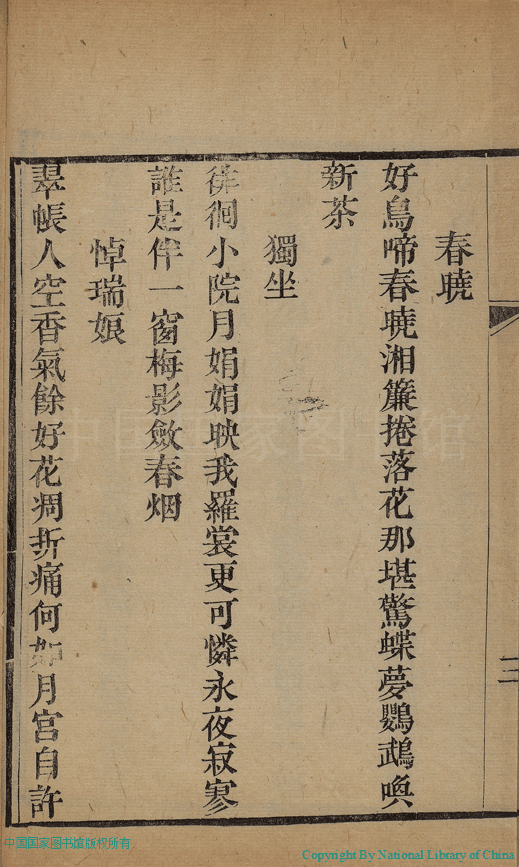 春曉
好鳥啼春曉湘簾捲落花那堪驚蝶夢鸚鵡喚
新茶
獨坐
徘徊小院月娟娟映我羅裳更可憐永夜寂寥
誰是伴一窗梅影斂春烟
悼瑞娘
翠帳人空香氣餘好花凋折痛何如月宮自許
三
中国国家图书馆
中国国家图书馆版权所有
Copyright By National Library of China